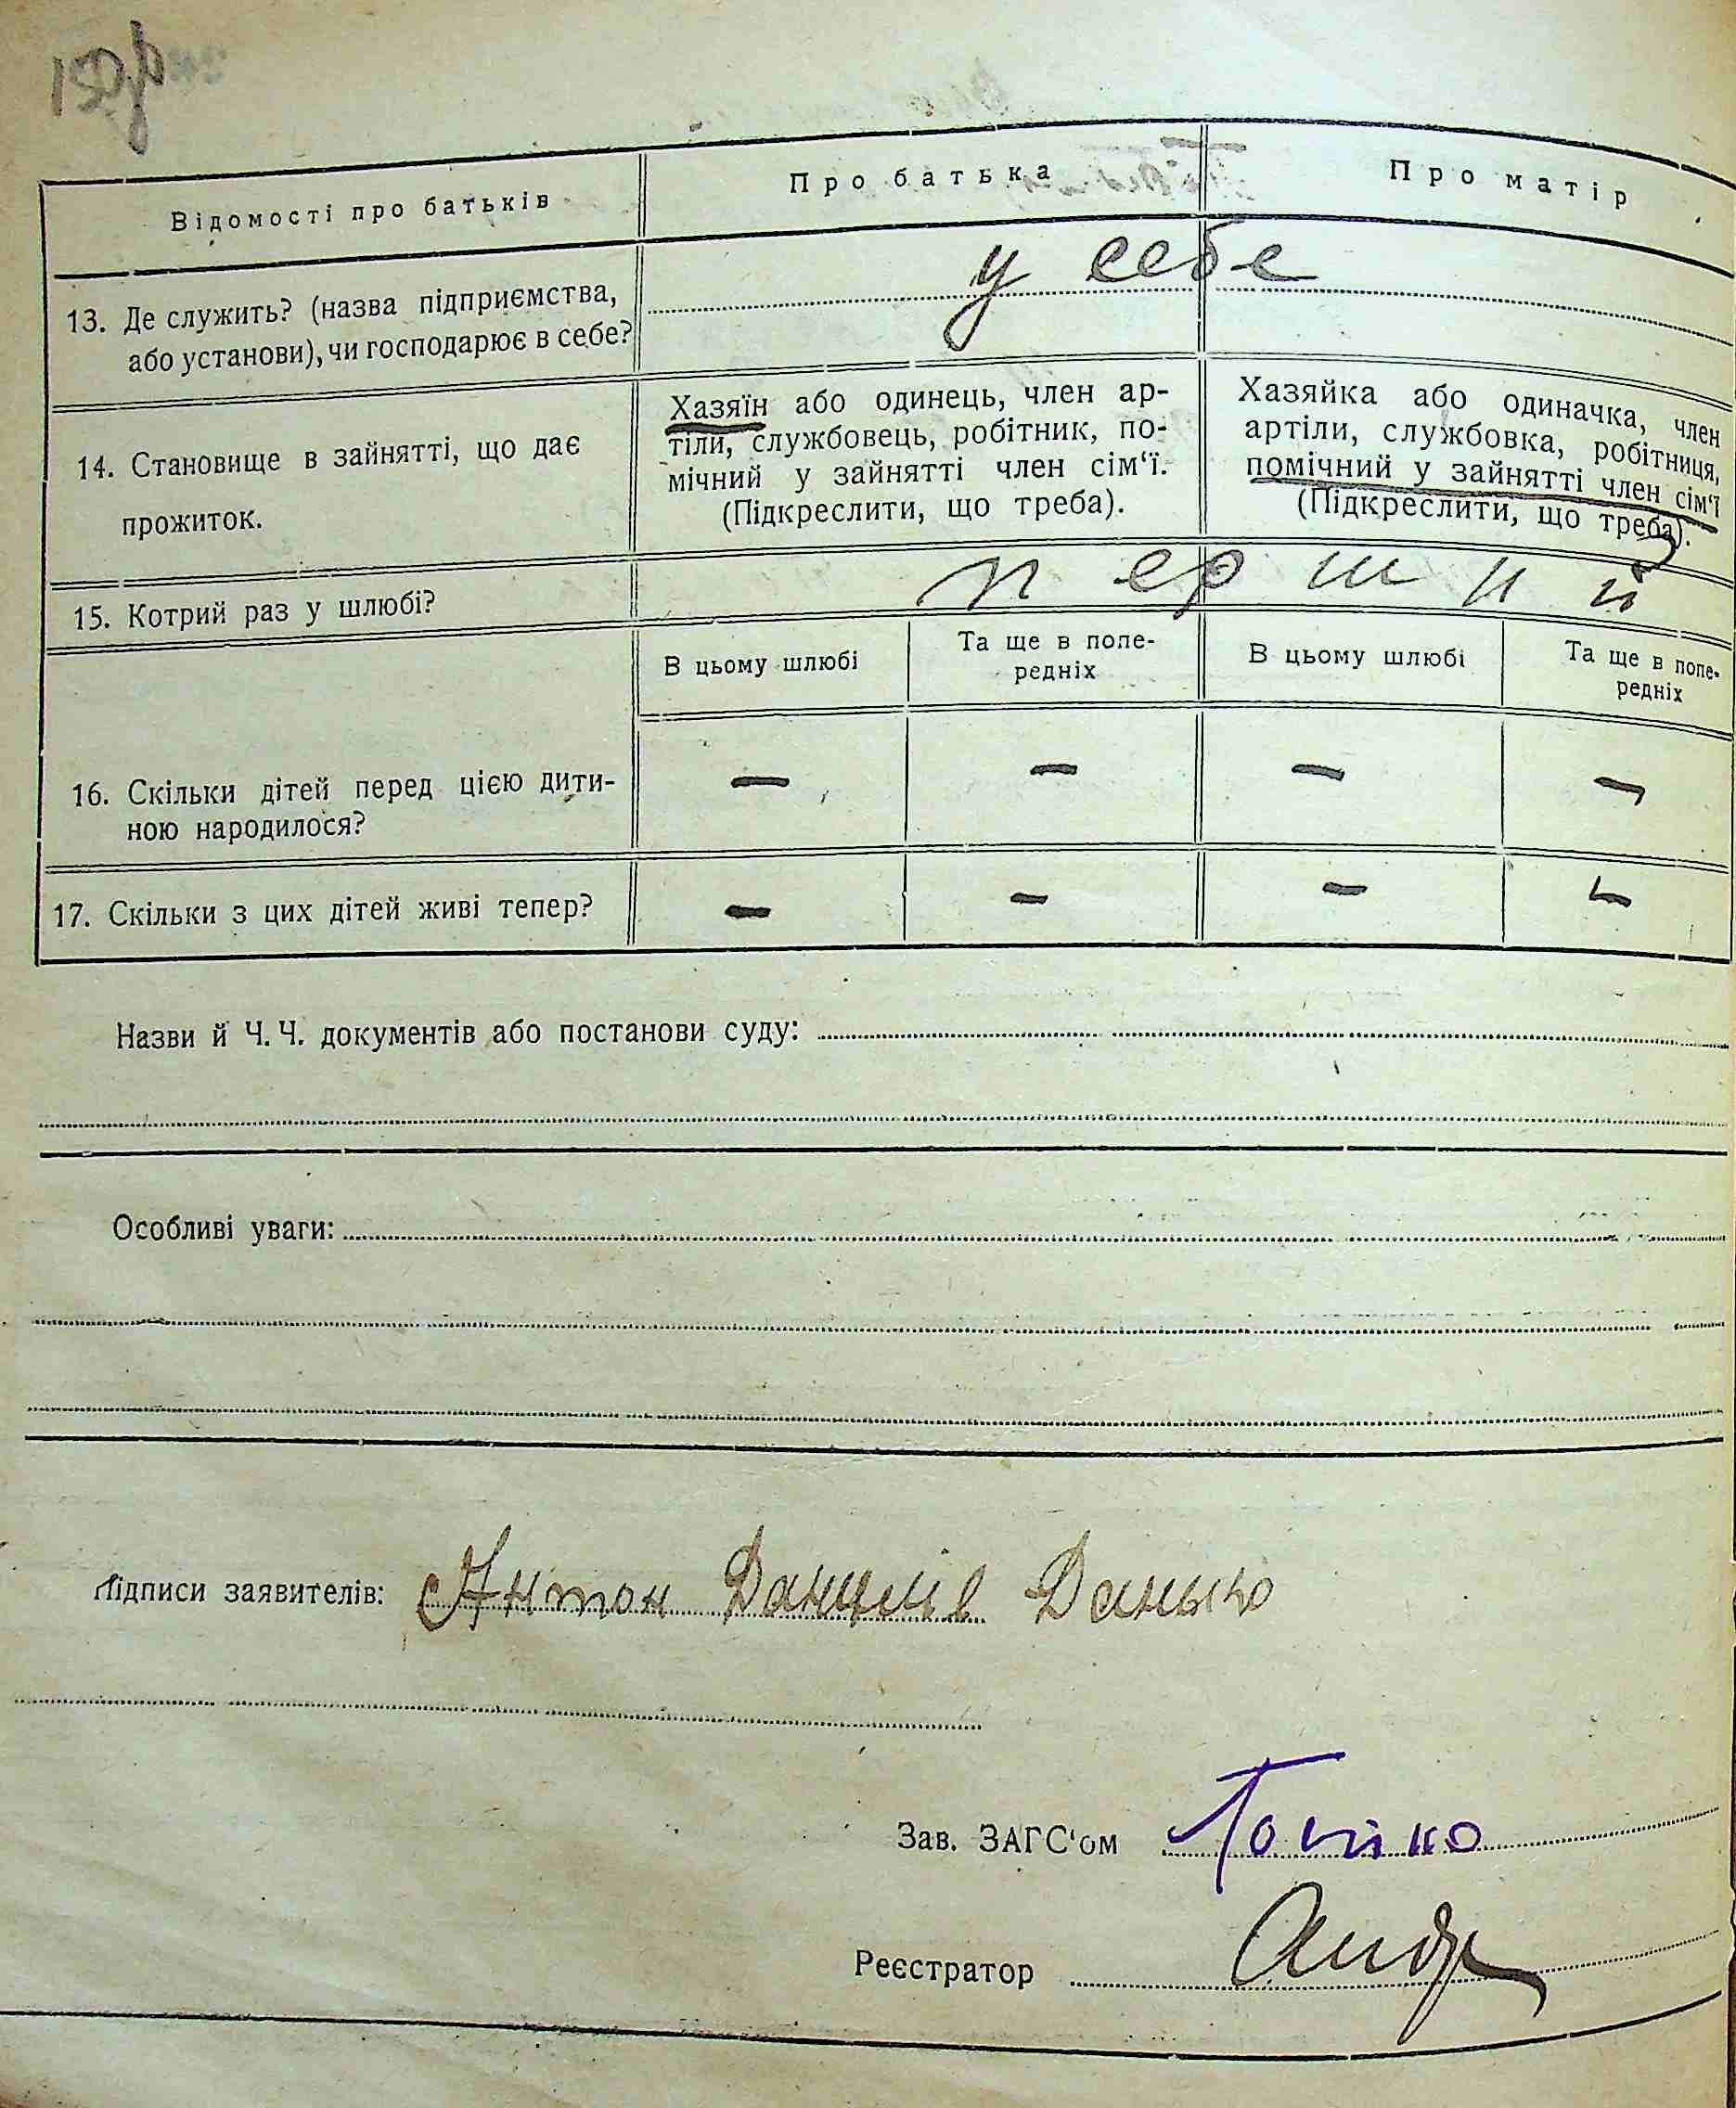 Відомості про батьків
Про батька
Про матір
13. Де служить? (назва підприємства,
або установи), чи господарює в себе?
у себе
14. Становище в зайнятті, що дає
прожиток.
Хазяїн або одинець, член ар-
тіли, службовець, робітник, по-
мічний у зайнятті член сім‘ї.
(Підкреслити, що треба).
Хазяйка або одиначка, член
артіли, службовка, робітниця,
помічний у зайнятті член сім‘ї
(Підкреслити, що треба).
15. Котрий раз у шлюбі?
перший
В цьому шлюбі
Та ще в попе-
редніх
В цьому шлюбі
Та ще в попе-
редніх
16. Скільки дітей перед цією дити-
ною народилося?
— — — —
17. Скільки з цих дітей живі тепер?
— — — —
Назви й Ч. Ч. документів або постанови суду:
Особливі уваги:
Підписи заявителів: Антон Данилів Данько
Зав. ЗАГС‘ом
Реєстратор